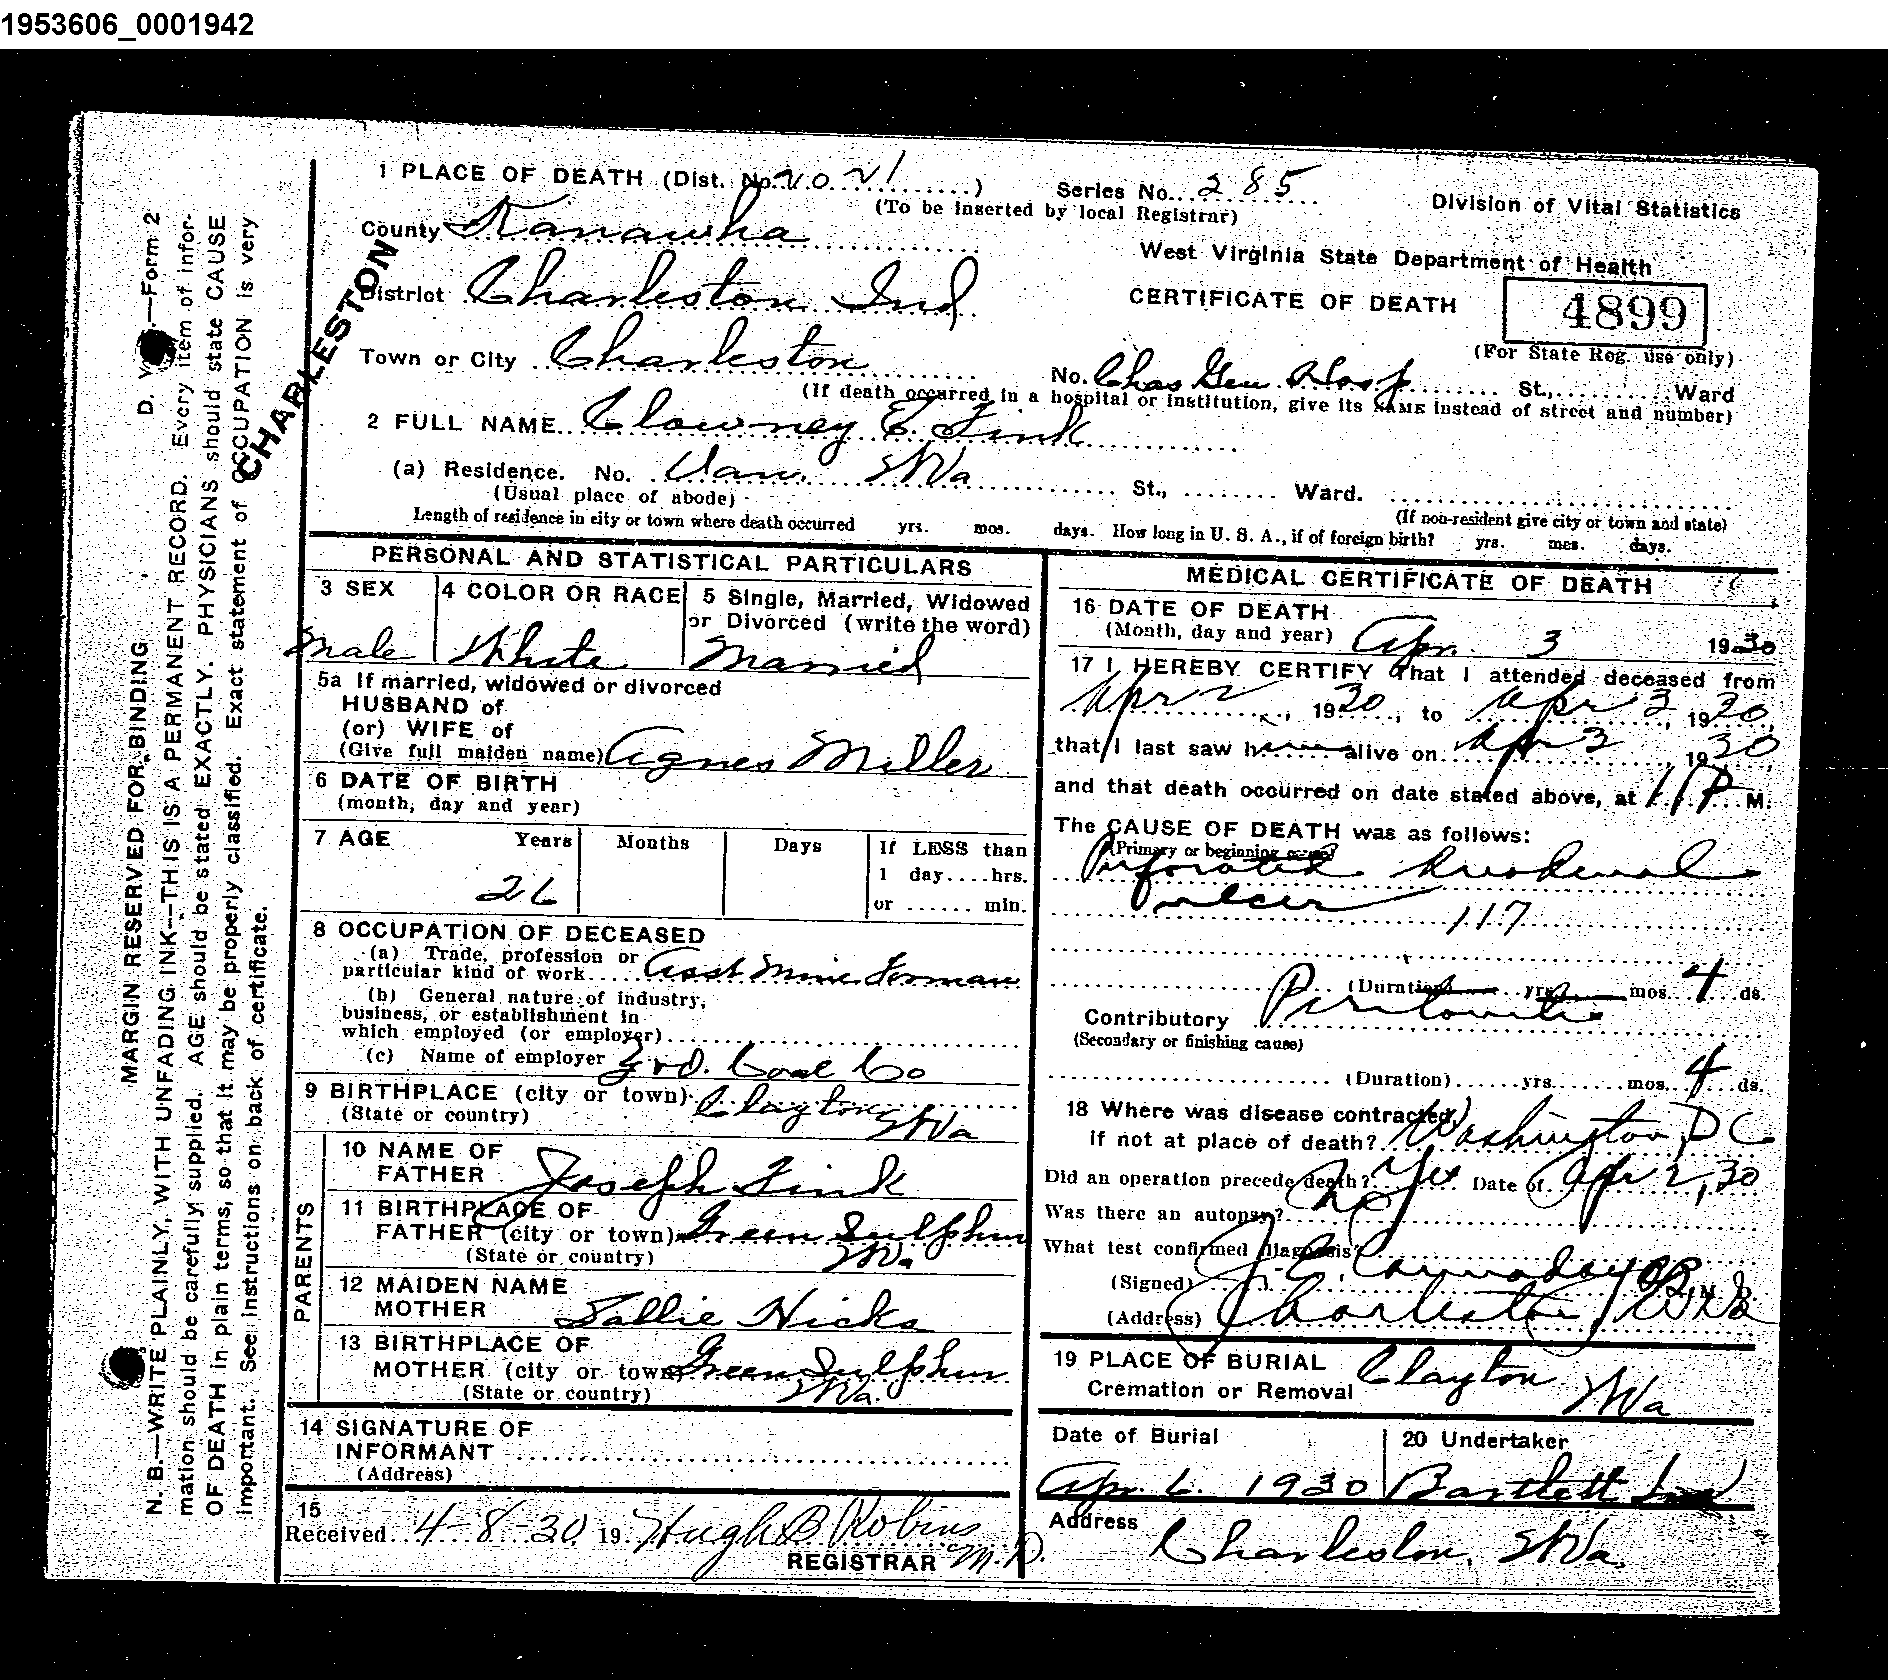 1953606_0001942
1 PLACE OF DEATH (Dist. No. 2021 ) Series No. 285
(To be inserted by local Registrar)
Division of Vital Statistics
County Kanawha
West Virginia State Department of Health
CHARLESTON
District Charleston Ind
CERTIFICATE OF DEATH 4899
(For State Reg. use only)
Town or City Charleston No. Chas Gen Hosp St., Ward
(If death occurred in a hospital or institution, give its NAME instead of street and number)
2 FULL NAME Clowney E. Fink
(a) Residence. No. Van. W Va St., Ward.
(Usual place of abode) (If non-resident give city or town and state)
Length of residence in city or town where death occurred yrs. mos. days. How long in U. S. A., if of foreign birth? yrs. mos. days.
PERSONAL AND STATISTICAL PARTICULARS
3 SEX 4 COLOR OR RACE 5 Single, Married, Widowed
or Divorced (write the word)
Male White Married
5a If married, widowed or divorced
HUSBAND of
(or) WIFE of
(Give full maiden name) Agnes Miller
6 DATE OF BIRTH
(month, day and year)
7 AGE Years Months Days If LESS than
1 day....hrs.
26 or ....... min.
8 OCCUPATION OF DECEASED
(a) Trade, profession or
particular kind of work Asst Mine Forman
(b) General nature of industry,
business, or establishment in
which employed (or employer)
(c) Name of employer Coal Co
9 BIRTHPLACE (city or town) Clayton
(State or country) W Va
PARENTS
10 NAME OF
FATHER Joseph Fink
11 BIRTHPLACE OF
FATHER (city or town) Green Sulphur
(State or country) W Va
12 MAIDEN NAME
MOTHER Sallie Hicks
13 BIRTHPLACE OF
MOTHER (city or town) Green Sulphur
(State or country) W Va.
14 SIGNATURE OF
INFORMANT
(Address)
15
Received 4-8-30 19 Hugh B Robins
REGISTRAR M.D.
MEDICAL CERTIFICATE OF DEATH
16 DATE OF DEATH
(Month, day and year) Apr. 3 1930
17 I HEREBY CERTIFY That I attended deceased from
Apr 2, 1930, to Apr 3, 1930,
that I last saw h alive on Apr 3 1930
and that death occurred on date stated above, at 11 P M.
The CAUSE OF DEATH was as follows:
(Primary or beginning cause)
Perforated duodenal
ulcer 117
(Duration) yrs. mos. 4 ds.
Contributory Peritonitis
(Secondary or finishing cause)
(Duration) yrs. mos. 4 ds.
18 Where was disease contracted
if not at place of death? Washington, D C
Did an operation precede death? Yes Date of Apr 2, 30
Was there an autopsy? No
What test confirmed diagnosis?
(Signed) J. E. Cannaday M. D.
(Address) Charleston, W Va
19 PLACE OF BURIAL Clayton
Cremation or Removal W Va
Date of Burial 20 Undertaker
Apr. 6. 1930 Bartlett
Address
Charleston, W Va.
MARGIN RESERVED FOR BINDING D. V. S.—Form 2
N. B.—WRITE PLAINLY, WITH UNFADING INK—THIS IS A PERMANENT RECORD. Every item of infor-
mation should be carefully supplied. AGE should be stated EXACTLY. PHYSICIANS should state CAUSE
OF DEATH in plain terms, so that it may be properly classified. Exact statement of OCCUPATION is very
important. See instructions on back of certificate.